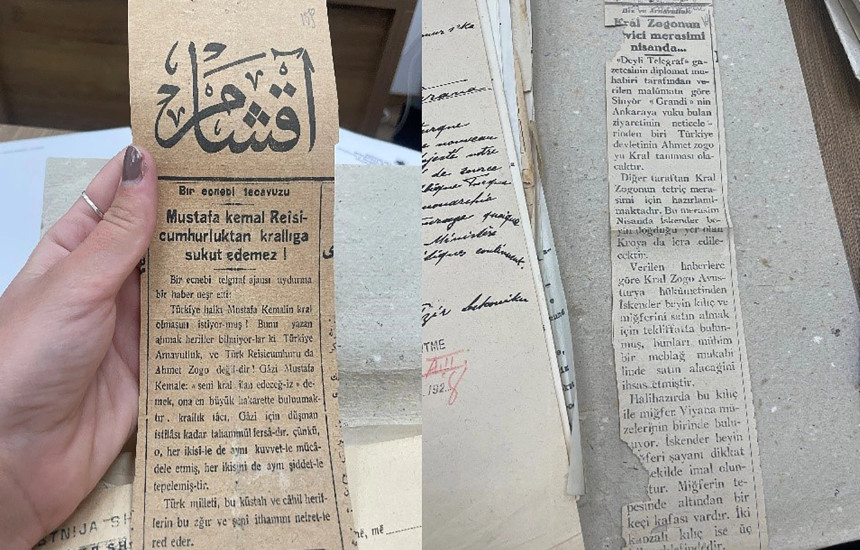 اقشام
Bir ecnebi tecavuzu
Mustafa kemal Reisi-
cumhurluktan krallığa
sukut edemez !
Bir ecnebi telgraf ajansı uydurma
bir haber neşr etti:
Türkiye halkı Mustafa Kemalin kral
olmasını istiyor-muş ! Bunu yazan
ahmak herifler bilmiyor-lar ki Türkiye
Arnavutluk, ve Türk Reisicumhuru da
Ahmet Zogo değil-dir! Gâzi Mustafa
Kemale: « seni kral ilan edeceğ-iz » de-
mek, ona en büyük hakarette bulunmak-
tır. krallık tâcı, Gâzi için düşman
istilâsı kadar tahammül fersâ-dır. çünkü,
o, her ikisi-le de aynı kuvvet-le mücâ-
dele etmiş, her ikisini de aynı şiddet-le
tepelemiş-tir.
Türk milleti, bu küstah ve câhil herif-
lerin bu ağır ve şeni ithamını nefret-le
red eder.
STNIJA SH
në, më
nouveau
notre
de source
Turque
Ministère
TME
A III
192
8
Bir ve Arnavutluk
Kral Zogonun
vici merasimi
nisanda...
«Deyli Telgraf» ga-
zetesinin diplomat mu-
habiri tarafından ve-
rilen malûmata göre
Sinyör «Grandi» nin
Ankaraya vuku bulan
ziyaretinin neticele-
rinden biri Türkiye
devletinin Ahmet zogo
yu Kral tanıması ola-
caktır.
Diğer taraftan Kral
Zogonun tetviç mera-
simi için hazırlanıl-
maktadır. Bu merasim
Nisanda İskender be-
yin doğduğu yer olan
Kroya da icra edile-
cektir.
Verilen haberlere
göre Kral Zogo Avus-
turya hükûmetinden
İskender beyin kılıç ve
miğferini satın almak
için teklifatta bulun-
muş, bunları mühim
bir meblağ mukabi
linde satın alacağını
ihsas etmiştir.
Halihazırda bu kılıç
ile miğfer Viyana mü-
zelerinin birinde bulu-
uyor. İskender beyin
feri şayanı dikkat
ekilde imal olun-
tur. Miğferin te-
pesinde altından bir
keçi kafası vardır. İki
kabzalı kılıç ise üç